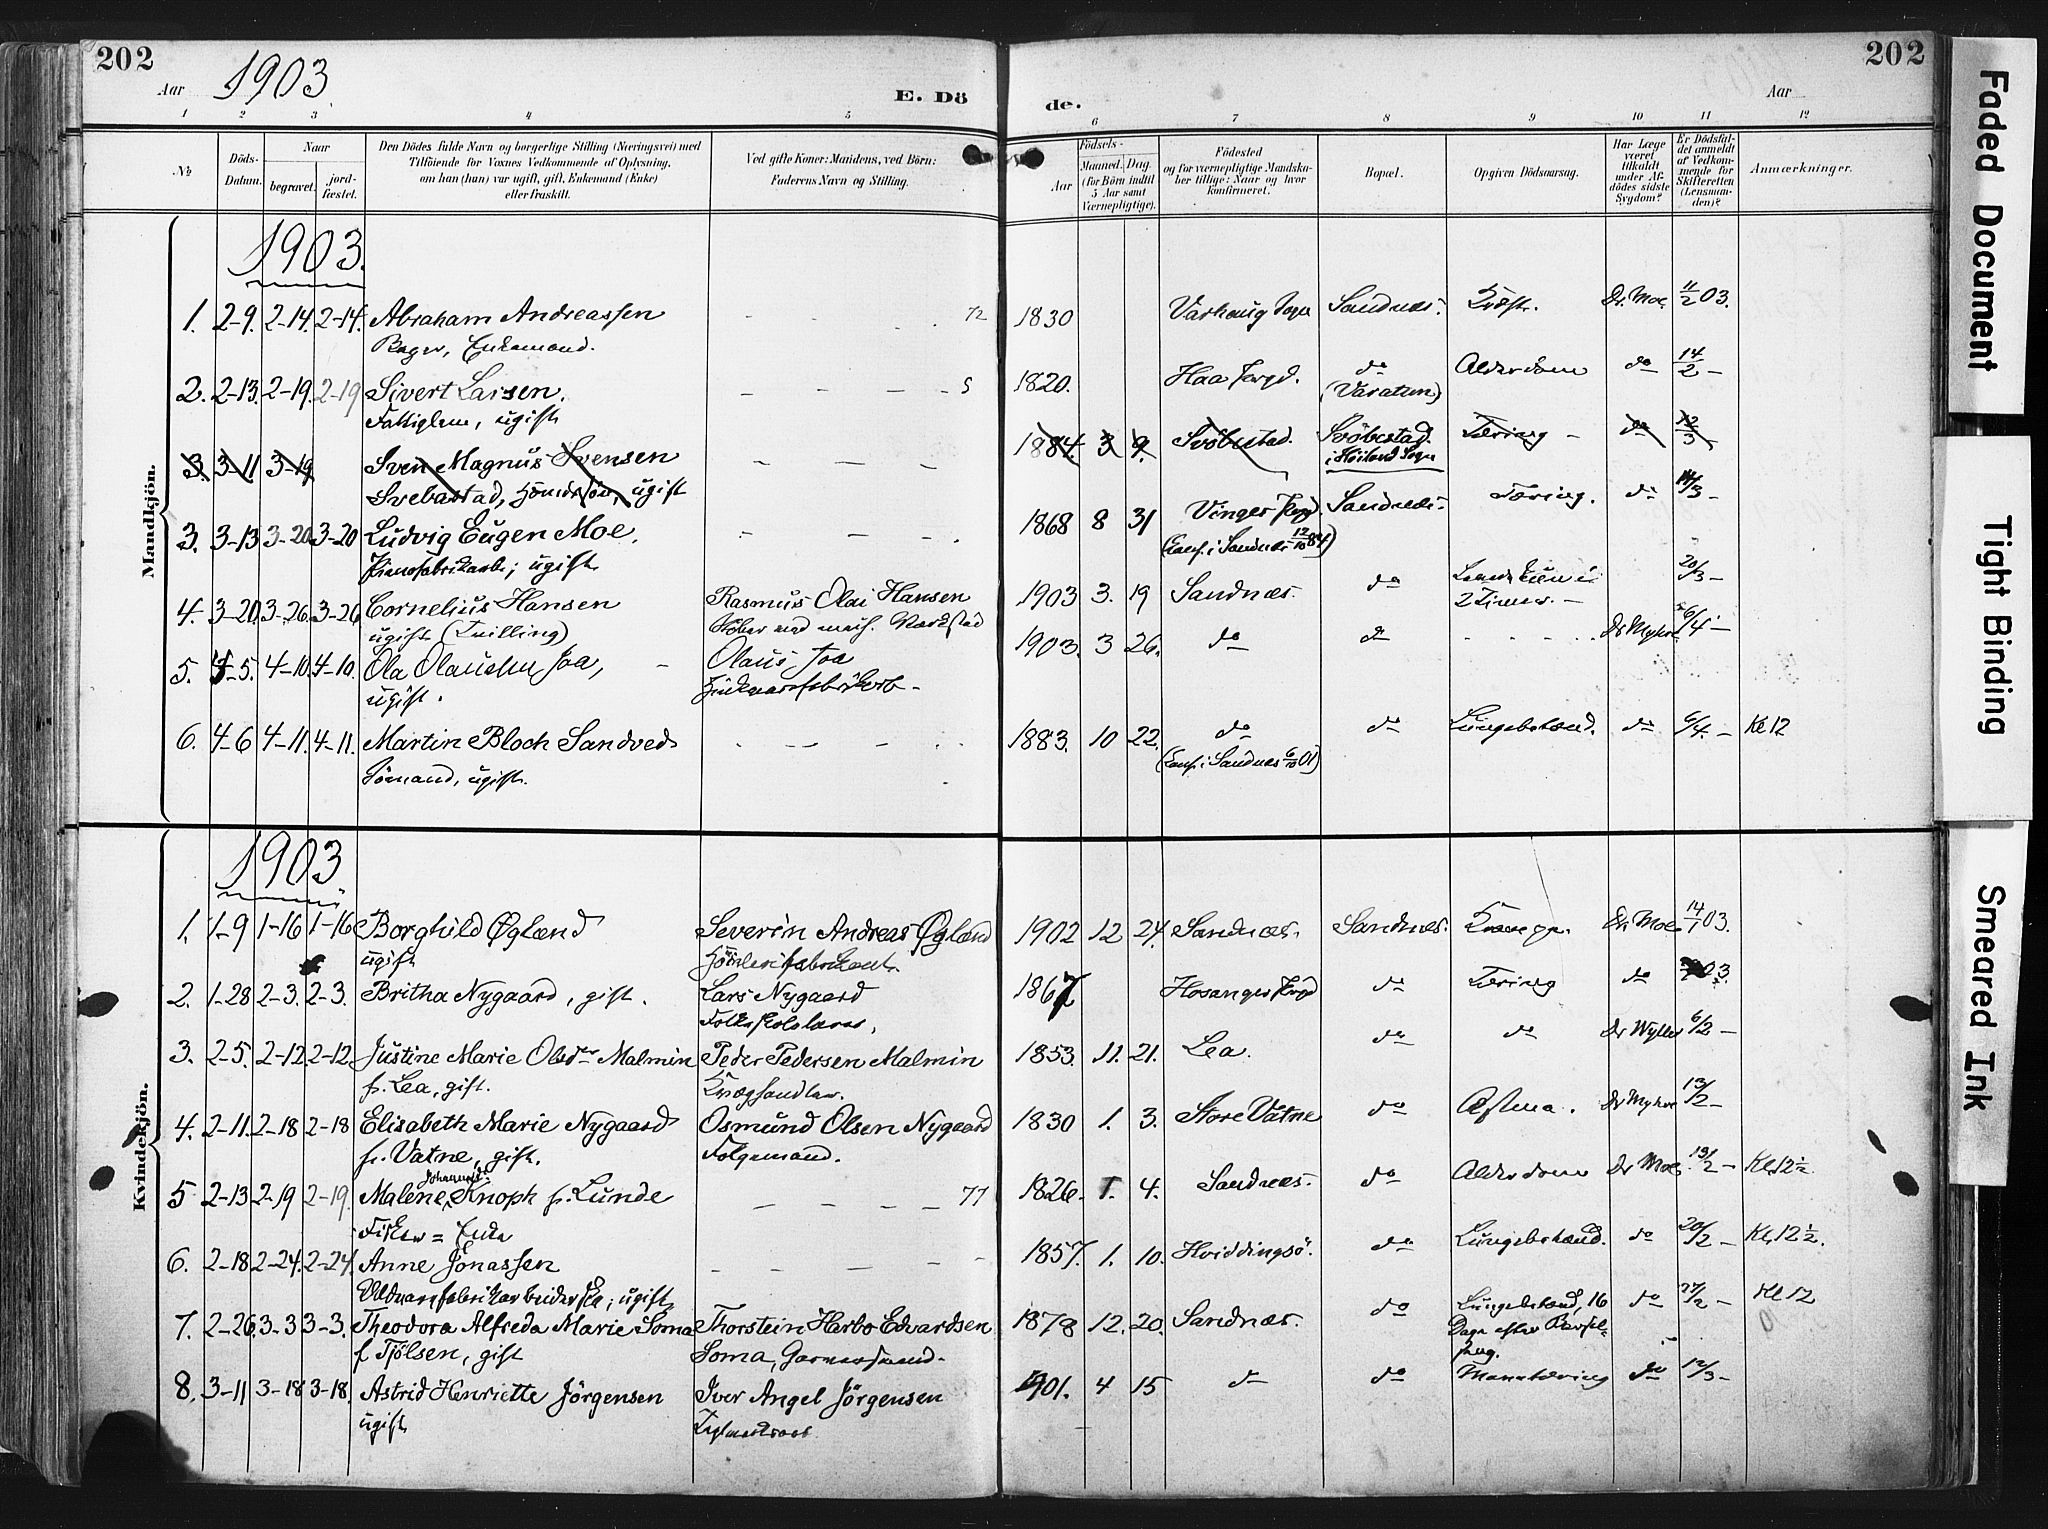 202
202
Aar 1903.
E. Dö
de.
Aar
1 2 3 4 5 6 7 8 9 10 11 12
№
Döds-Datum.
Naar
begravet.
jord-fæstet.
Den Dödes fulde Navn og borgerlige Stilling (Næringsvei) med
Tilföiende for Voxnes Vedkommende af Oplysning,
om han (hun) var ugift, gift, Enkemand (Enke)
eller fraskilt.
Ved gifte Koner: Mandens, ved Börn:
Faderens Navn og Stilling.
Födsels-
Aar
Maaned. Dag.
(for Börn indtil
5 Aar samt
Værnepligtige).
Födested
og for værnepligtige Mandska-
ber tillige: Naar og hvor
konfirmeret.
Bopæl.
Opgiven Dödsaarsag.
Har Læge
været
tilkaldt
under Af-
dödes sidste
Sygdom?
Er Dödsfal-
det anmeldt
af Vedkom-
mende for
Skifteretten
(Lensman-
den)?
Anmærkninger.
Mandkjön.
1903.
1. 2-9. 2-14. 2-14. Abraham Andreassen - - - 72 1830 Varhaug Sogn Sandnes. Kræft. Dr. Moe. 11/2 03.
Bager, Enkemand.
2. 2-13. 2-19. 2-19 Sivert Larsen. - - - - 1820. Haa Prgd. do Alderdom do 14/2 -
Fattiglem, ugift (Varatun)
3. 3-11 3-19 Sven Magnus Svensen - - - 1884. 3 9. Svöbestad. Svöbestad Tæring - do 12/3 -
Svebastad, Gaardssön, ugift i Höiland Sogn
3. 3-13 3-20 3-20 Ludvig Eugen Moe, - - - 1868 8 31 Vinger Prgd. Sandnes. Tæring. do 14/3 -
Pianofabrikarb.; ugift (Conf. i Sandnes 12/10 84)
4. 3-20. 3-26. 3-26 Cornelius Hansen Rasmus Olai Hansen 1903 3. 19 Sandnæs. do 20/3 -
ugift (Tvilling) 2 Timer. -
5. 4-5. 4-10. 4-10. Ola Olaussen Joa, - Olaus Joa 1903. 3 26. do do - - - Dr Myhre 6/4 -
ugift.
6. 4-6 4-11. 4-11. Martin Bloch Sandved - - - - 1883. 10 22. do do Lungebetænd. do 6/4. - Kl 12
Sömand, ugift. (Conf. i Sandnæs 6/10 01)
Kvindekjön.
1903.
1. 1-9 1-16 1-16 Borghild Øglænd Severin Andreas Øglænd 1902 12 24. Sandnæs. Sandnæs. Krampe. Dr. Moe 14/1 03.
ugift
2. 1-28 2-3. 2-3. Britha Nygaard, gift. Lars Nygaard 1867 Hosanger Prgd do Tæring do 03.
Folkeskolelærer,
3. 2-5. 2-12. 2-12. Justine Marie Olsdtr Malmin Peder Pedersen Malmin 1853. 11. 21. Lea. do do Dr Wyller 6/2 -
f. Lea, gift. Kvæghandler.
4. 2-11. 2-18 2-18 Elisabeth Marie Nygaard Osmund Olsen Nygaard 1830 1. 3. Store Vatne do Astma. Dr Myhre 13/2 -
f. Vatne, gift. Folgemand.
5 2-13 2-19 2-19. Malene Johannesd. Knoph f. Lunde - - - - 77 1826. 1. 4. Sandnes. do Alderdom Dr Moe 13/2 - Kl. 12½
Fisker = Enke
6. 2-18 2-24. 2-24. Anne Jonassen - - - - - 1857. 1. 10. Hviddingsö. do Lungebetænd. do 20/2 - Kl. 12½.
Uldvarefabrikarbeiderske; ugift
7. 2-26. 3-3 3-3. Theodora Alfreda Marie Soma Thorstein Harbo Edvardsen 1878 12. 20. Sandnæs. do Lungebetænd, 16 do 27/2 - Kl 12
f Tjölsen, gift Soma, Garversvend. Dage efter Barsel-
8. 3-11 3-18 3-18. Astrid Henriette Jörgensen Iver Angel Jörgensen 1901. 4 15 do do do 12/3 -
ugift
Faded Document
Tight Binding
Smeared Ink